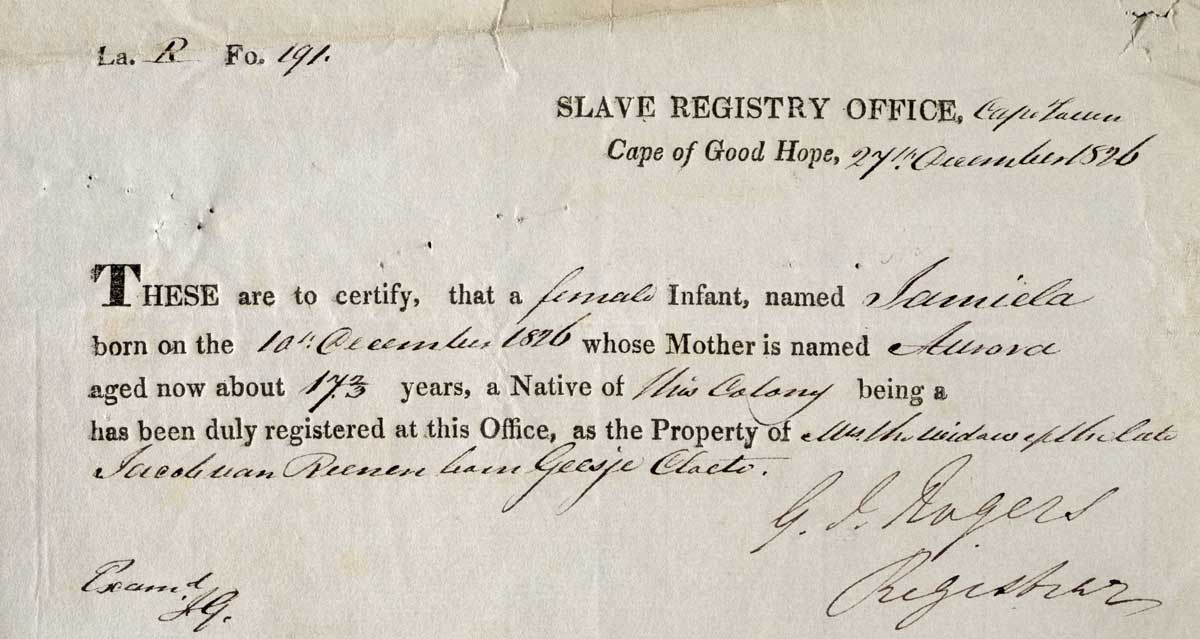 La. R Fo. 191.
SLAVE REGISTRY OFFICE, Cape Town
Cape of Good Hope, 27th December 1826
THESE are to certify, that a female Infant, named Jamiela
born on the 10th December 1826 whose Mother is named Aurora
aged now about 17⅔ years, a Native of this Colony being a
has been duly registered at this Office, as the Property of Mrs the widow of the late
Jacob van Reenen born Geesje Cloete.
G. J. Rogers
Registrar
Examd
JG.